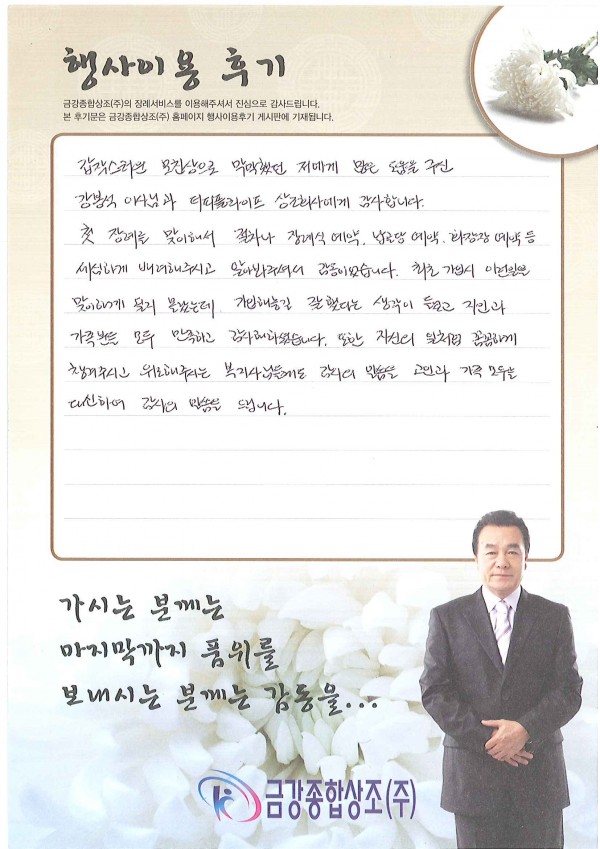 행사이용 후기
금강종합상조(주)의 장례서비스를 이용해주셔서 진심으로 감사드립니다.
본 후기문은 금강종합상조(주) 홈페이지 행사이용후기 게시판에 기재됩니다.
갑작스러운 모친상으로 막막했던 저에게 많은 도움을 주신
강봉석 이사님과 티피플라이프 상조회사에게 감사합니다.
첫 장례를 맞이해서 절차나 장례식 예약, 납골당 예약, 화장장 예약 등
세심하게 배려해주시고 알아봐주셔서 감동이었습니다. 최초 가입시 이런일을
맞이하게 될지 몰랐는데 가입해놓길 잘 했다는 생각이 들었고 지인과
가족분들 모두 만족하고 감사해하셨습니다. 또한 자신의 일처럼 꼼꼼하게
챙겨주시고 위로해주시는 복지사님들께도 감사의 말씀을 고인과 가족 모두를
대신하여 감사의 말씀을 드립니다.
가시는 분께는
마지막까지 품위를
보내시는 분께는 감동을...
금강종합상조(주)